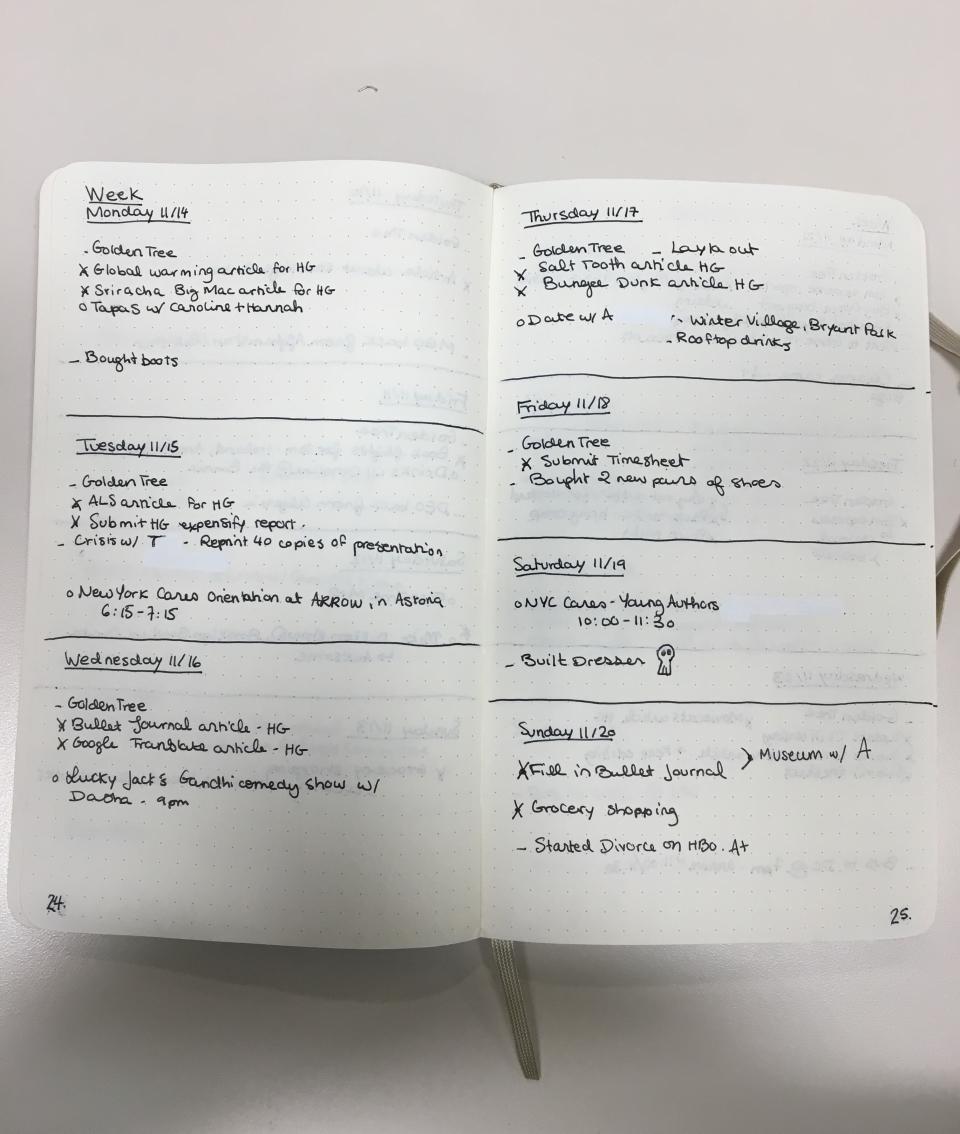 Week
Monday 11/14
- GoldenTree
x Global warming article for HG
x Sriracha Big Mac article for HG
o Tapas w/ Caroline + Hannah
- Bought boots
Tuesday 11/15
- GoldenTree
x ALS article for HG
x Submit HG expensify report.
- Crisis w/ T - Reprint 40 copies of presentation
o New York Cares Orientation at ARROW in Astoria
6:15-7:15
Wednesday 11/16
- GoldenTree
x Bullet Journal article - HG
x Google Translate article - HG
o Lucky Jack's Gandhi comedy show w/
Dasha - 9pm
24.
Thursday 11/17
- GoldenTree - Layla out
x Salt Tooth article HG
x Bungee Dunk article HG
o Date w/ A - Winter Village, Bryant Park
- Rooftop drinks
Friday 11/18
- GoldenTree
x Submit Timesheet
- Bought 2 new pairs of shoes
Saturday 11/19
o NYC Cares - Young Authors
10:00-11:30
- Built Dresser
Sunday 11/20
x Fill in Bullet Journal > Museum w/ A
x Grocery shopping
- Started Divorce on HBO. A+
25.